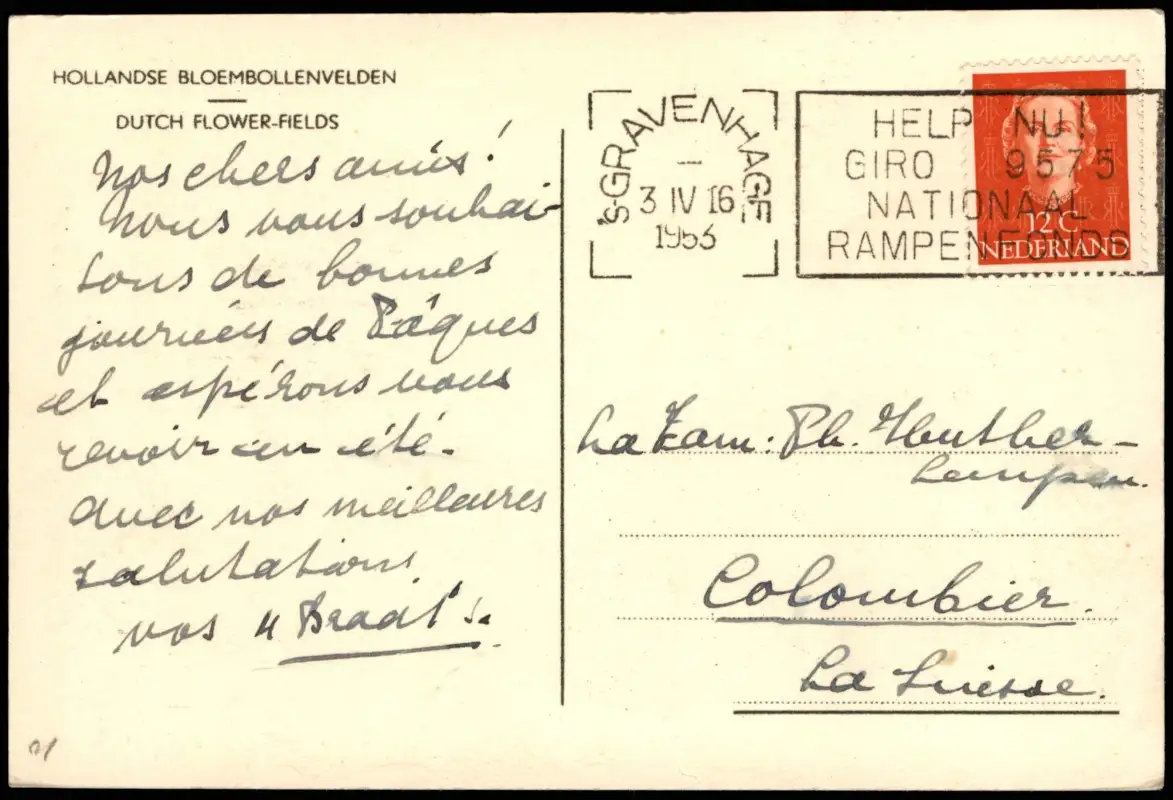 HOLLANDSE BLOEMBOLLENVELDEN
DUTCH FLOWER-FIELDS
Nos chers amis!
Nous vous souhai-
tons de bonnes
journées de Pâques
et espérons vous
revoir en été.
Avec nos meilleures
salutations
vos 4 Braat's.
'S-GRAVENHAGE
3 IV 16
1953
HELP NU!
GIRO 9575
NATIONAAL
RAMPENFONDS
12 C
NEDERLAND
La Fam: Ph.
Colombier.
La Suisse.